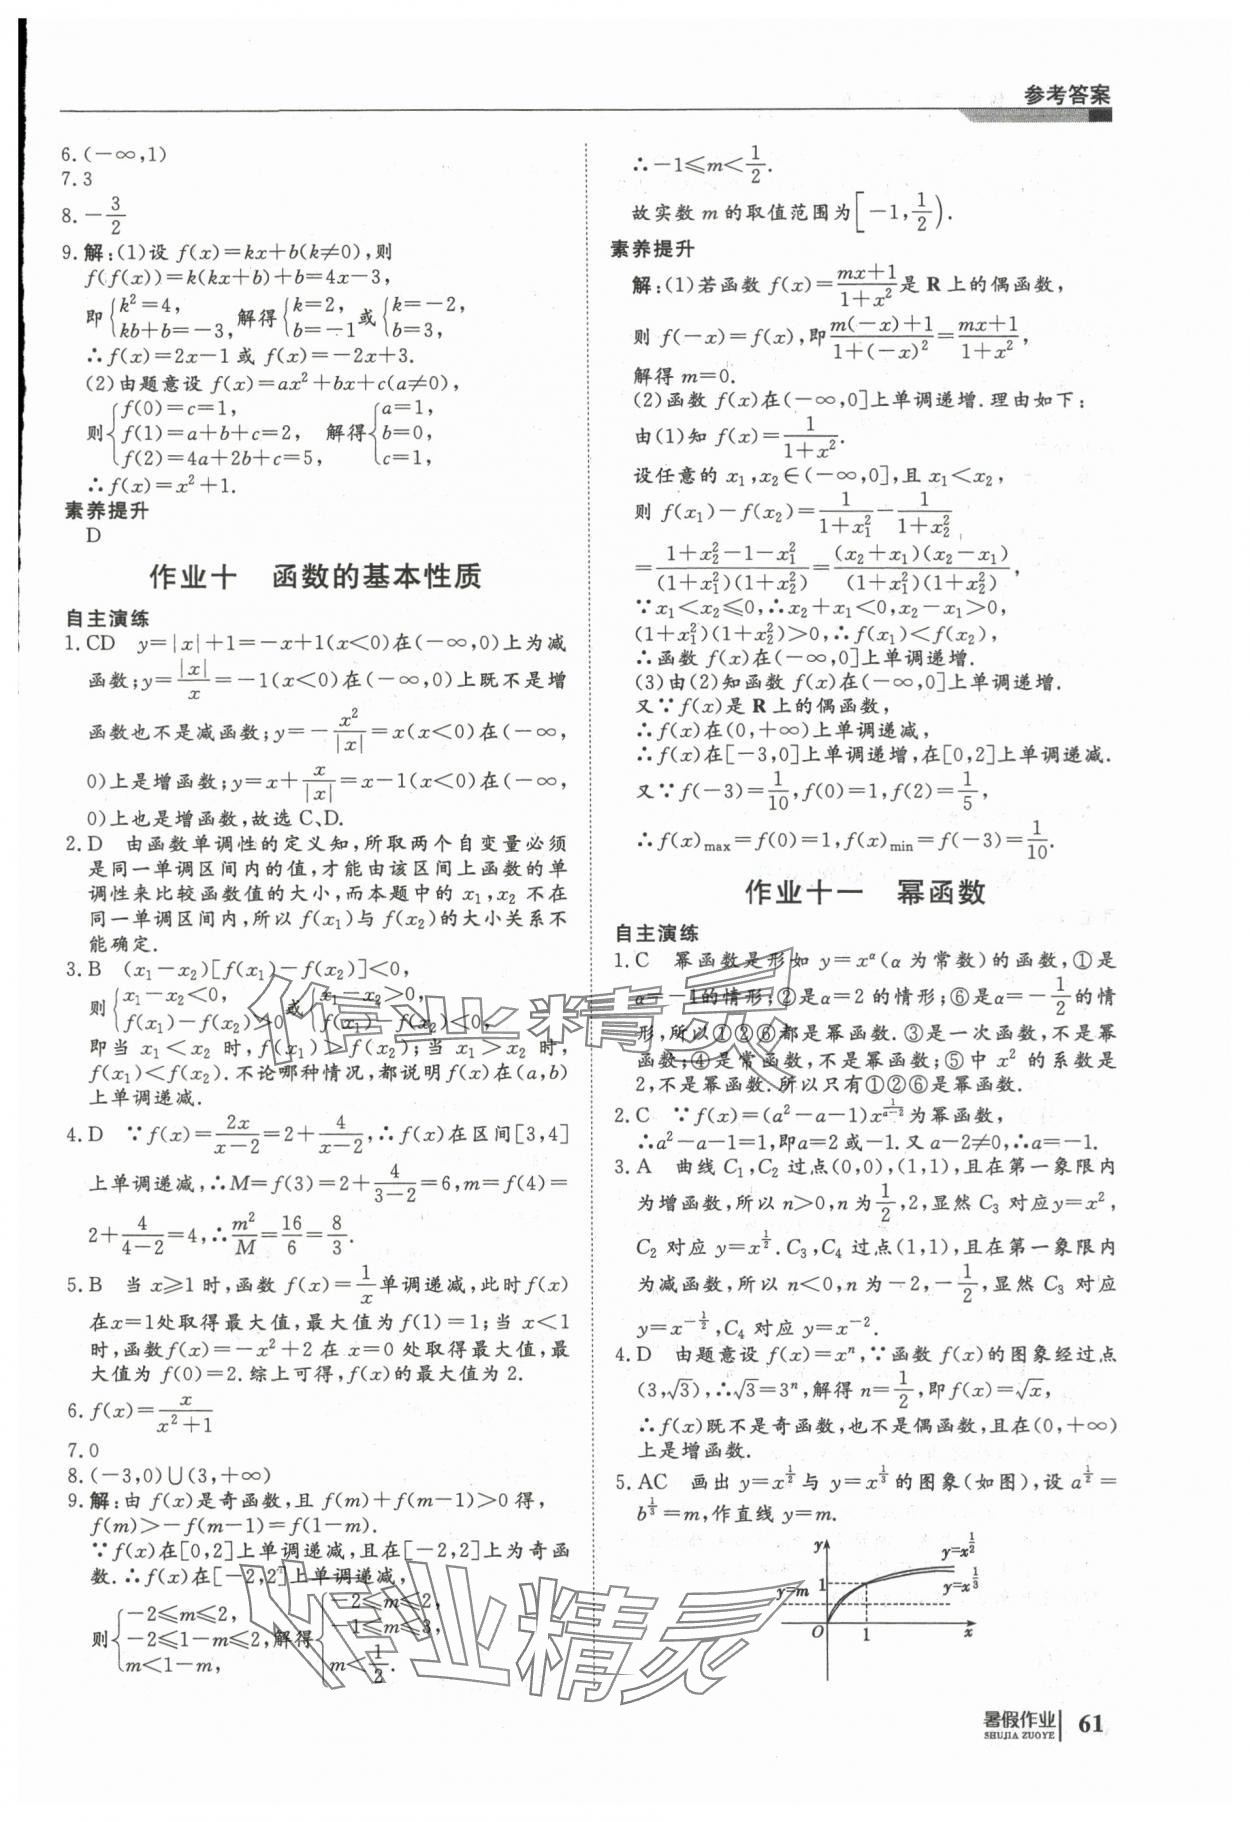 参考答案
6.(-∞,1)
7.3
8.-3/2
9.解:(1)设 f(x)=kx+b(k≠0),则
f(f(x))=k(kx+b)+b=4x-3,
即{k²=4, kb+b=-3, 解得{k=2, b=-1 或{k=-2, b=3,
∴f(x)=2x-1 或 f(x)=-2x+3.
(2)由题意设 f(x)=ax²+bx+c(a≠0),
则{f(0)=c=1, f(1)=a+b+c=2, f(2)=4a+2b+c=5, 解得{a=1, b=0, c=1,
∴f(x)=x²+1.
素养提升
D
作业十 函数的基本性质
自主演练
1.CD y=|x|+1=-x+1(x<0)在(-∞,0)上为减
函数;y=|x|/x=-1(x<0)在(-∞,0)上既不是增
函数也不是减函数;y=-x²/|x|=x(x<0)在(-∞,
0)上是增函数;y=x+x/|x|=x-1(x<0)在(-∞,
0)上也是增函数,故选C、D.
2.D 由函数单调性的定义知,所取两个自变量必须
是同一单调区间内的值,才能由该区间上函数的单
调性来比较函数值的大小,而本题中的 x₁,x₂ 不在
同一单调区间内,所以 f(x₁)与 f(x₂)的大小关系不
能确定.
3.B (x₁-x₂)[f(x₁)-f(x₂)]<0,
则{x₁-x₂<0, f(x₁)-f(x₂)>0 或{x₁-x₂>0, f(x₁)-f(x₂)<0,
即当 x₁<x₂ 时,f(x₁)>f(x₂);当 x₁>x₂ 时,
f(x₁)<f(x₂).不论哪种情况,都说明 f(x)在(a,b)
上单调递减.
4.D ∵f(x)=2x/(x-2)=2+4/(x-2),∴f(x)在区间[3,4]
上单调递减,∴M=f(3)=2+4/(3-2)=6,m=f(4)=
2+4/(4-2)=4,∴m²/M=16/6=8/3.
5.B 当 x≥1 时,函数 f(x)=1/x单调递减,此时 f(x)
在x=1处取得最大值,最大值为 f(1)=1;当 x<1
时,函数f(x)=-x²+2 在 x=0 处取得最大值,最
大值为 f(0)=2.综上可得,f(x)的最大值为 2.
6.f(x)=x/(x²+1)
7.0
8.(-3,0)∪(3,+∞)
9.解:由 f(x)是奇函数,且 f(m)+f(m-1)>0 得,
f(m)>-f(m-1)=f(1-m).
∵f(x)在[0,2]上单调递减,且在[-2,2]上为奇函
数.∴f(x)在[-2,2]上单调递减,
则{-2≤m≤2, -2≤1-m≤2, m<1-m, 解得{-2≤m≤2, -1≤m≤3, m<1/2.
∴-1≤m<1/2.
故实数 m 的取值范围为[-1,1/2).
素养提升
解:(1)若函数 f(x)=(mx+1)/(1+x²)是 R 上的偶函数,
则 f(-x)=f(x),即(m(-x)+1)/(1+(-x)²)=(mx+1)/(1+x²),
解得 m=0.
(2)函数 f(x)在(-∞,0]上单调递增.理由如下:
由(1)知 f(x)=1/(1+x²).
设任意的 x₁,x₂∈(-∞,0],且 x₁<x₂,
则 f(x₁)-f(x₂)=1/(1+x₁²)-1/(1+x₂²)
=(1+x₂²-1-x₁²)/((1+x₁²)(1+x₂²))=(x₂+x₁)(x₂-x₁)/((1+x₁²)(1+x₂²)),
∵x₁<x₂≤0,∴x₂+x₁<0,x₂-x₁>0,
(1+x₁²)(1+x₂²)>0,∴f(x₁)<f(x₂),
∴函数 f(x)在(-∞,0]上单调递增.
(3)由(2)知函数 f(x)在(-∞,0]上单调递增.
又∵f(x)是 R 上的偶函数,
∴f(x)在(0,+∞)上单调递减,
∴f(x)在[-3,0]上单调递增,在[0,2]上单调递减.
又∵f(-3)=1/10,f(0)=1,f(2)=1/5,
∴f(x)max=f(0)=1,f(x)min=f(-3)=1/10.
作业十一 幂函数
自主演练
1.C 幂函数是形如 y=x^α(α 为常数)的函数,①是
α=-1的情形;②是α=2 的情形;⑥是α=-1/2的情
形,所以①②⑥都是幂函数.③是一次函数,不是幂
函数;④是常函数,不是幂函数;⑤中 x² 的系数是
2,不是幂函数.所以只有①②⑥是幂函数.
2.C ∵f(x)=(a²-a-1)x^(1/(a-2))为幂函数,
∴a²-a-1=1,即a=2 或-1.又 a-2≠0,∴a=-1.
3.A 曲线 C₁,C₂ 过点(0,0),(1,1),且在第一象限内
为增函数,所以 n>0,n 为1/2,2,显然 C₃ 对应y=x²,
C₂ 对应 y=x^(1/2).C₃,C₄ 过点(1,1),且在第一象限内
为减函数,所以 n<0,n 为-2,-1/2,显然 C₃ 对应
y=x^(-1/2),C₄ 对应 y=x^(-2).
4.D 由题意设 f(x)=xⁿ,∵函数 f(x)的图象经过点
(3,√3),∴√3=3ⁿ,解得 n=1/2,即 f(x)=√x,
∴f(x)既不是奇函数,也不是偶函数,且在(0,+∞)
上是增函数.
5.AC 画出 y=x^(1/2)与 y=x^(1/3)的图象(如图),设 a^(1/2)=
b^(1/3)=m,作直线 y=m.
y
y=x^(1/2)
1
y=x^(1/3)
y=m
O 1 x
暑假作业
SHUJIA ZUOYE
61
作业精灵
作业精灵